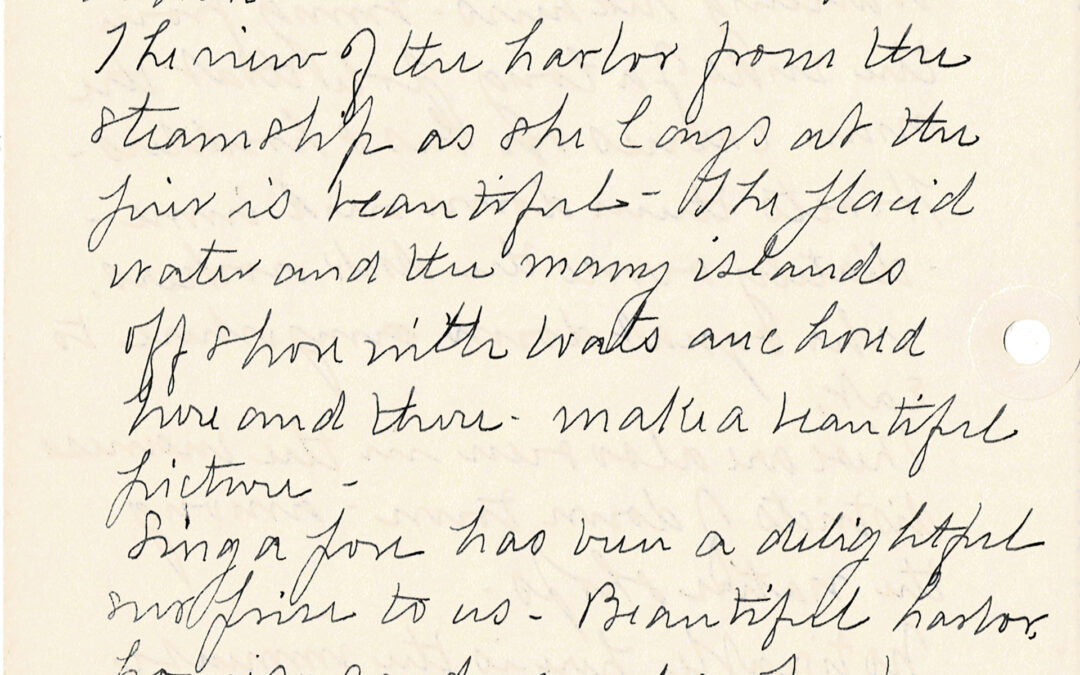 The view of the harbor from the
steamship as she lays at the
pier is beautiful - The placid
water and the many islands
off shore with boats anchored
here and there - make a beautiful
picture -
Singapore has been a delightful
surprise to us - Beautiful harbor,